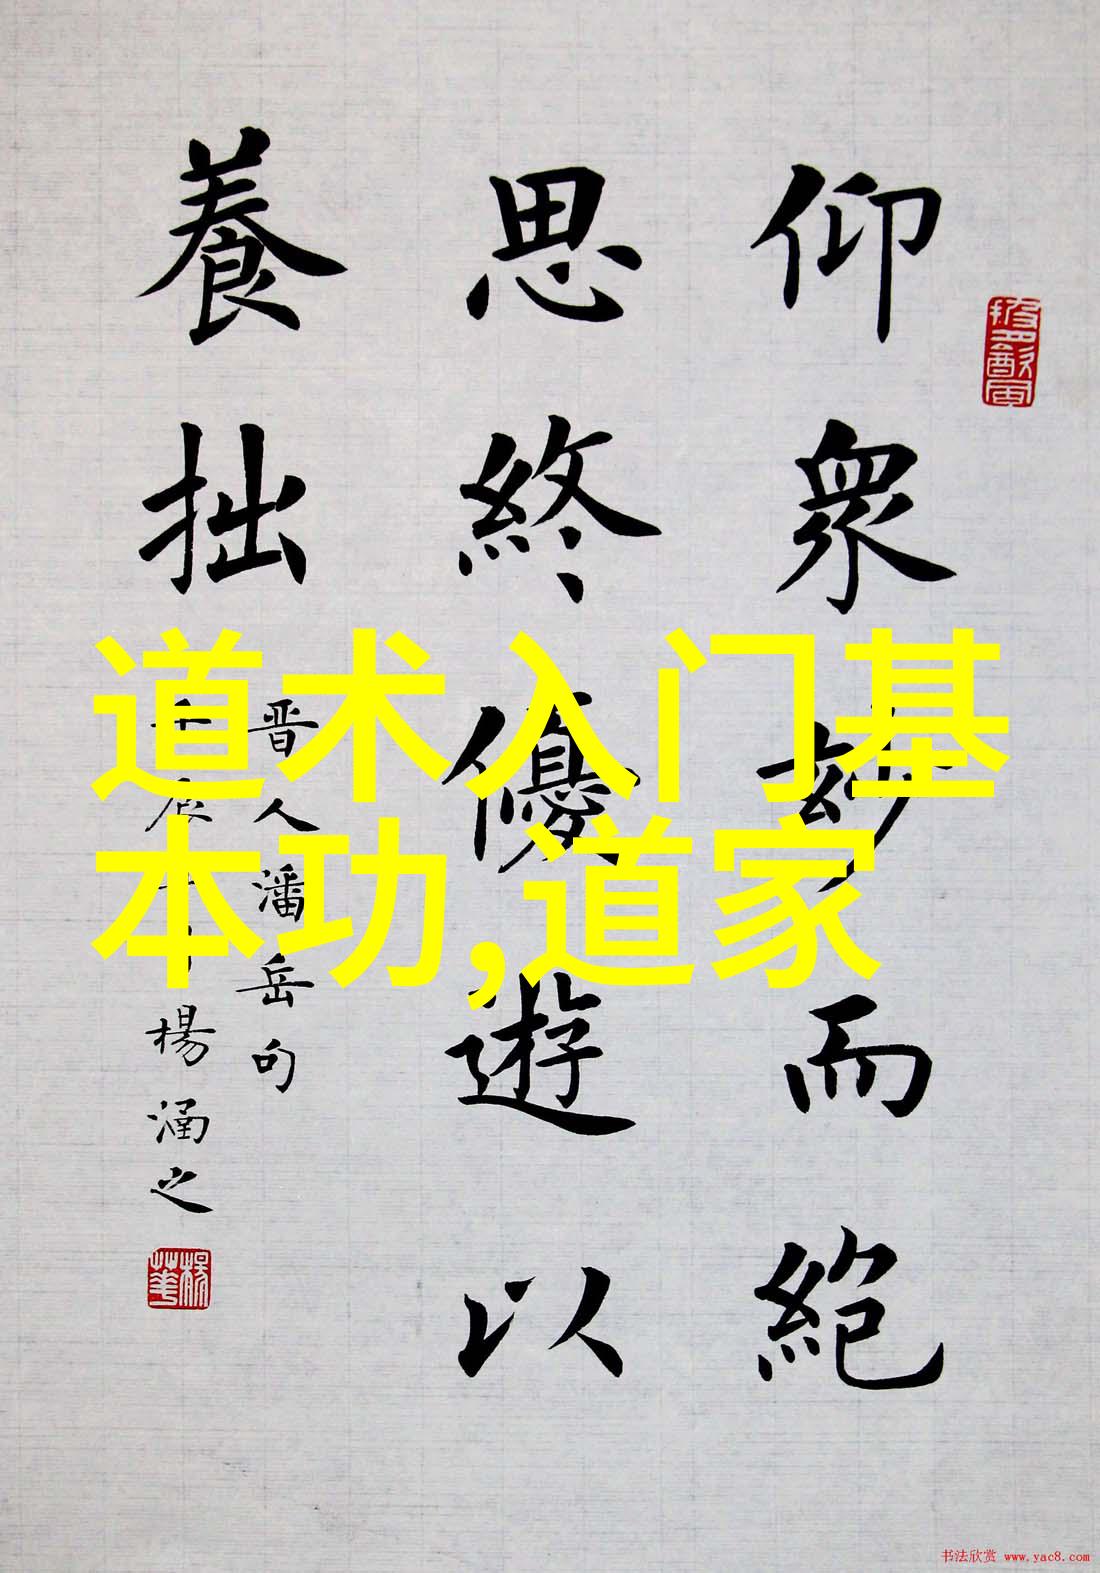 仰衆妙而絶
思終優遊以
養拙
晋人潘岳句
楊涵之
道术入门基
本功,道家
书法欣赏 www.yac8.com